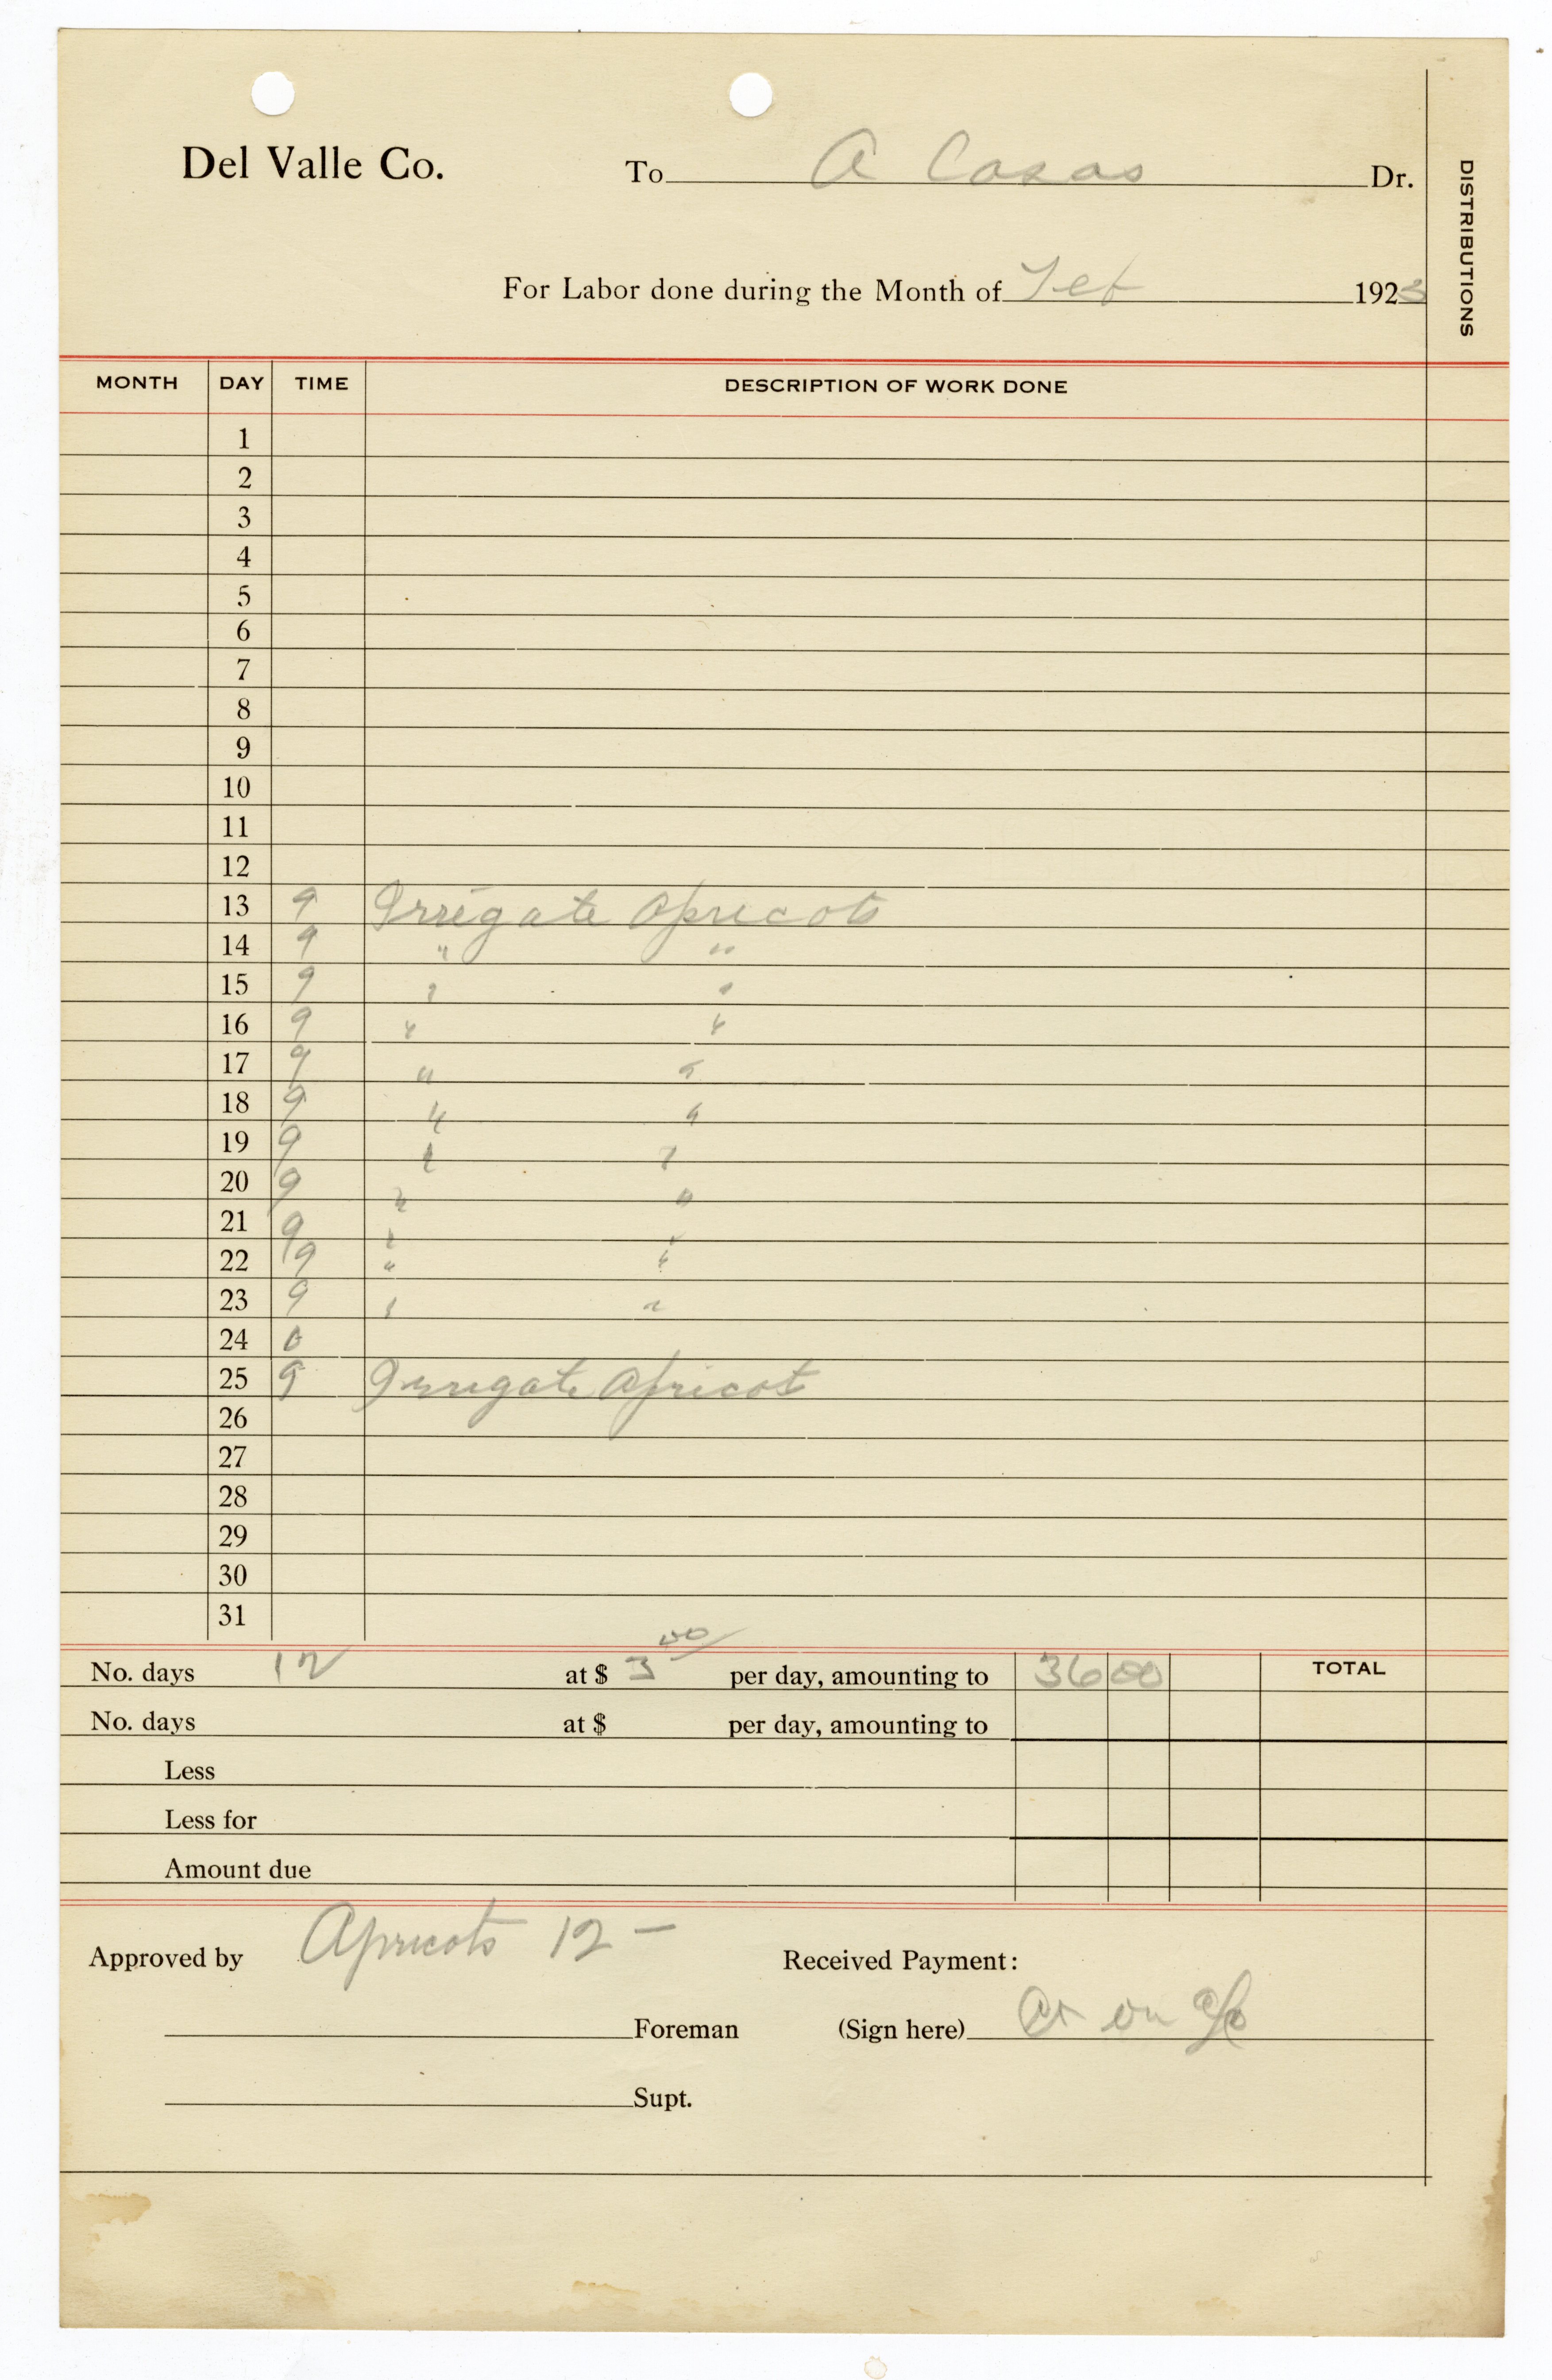 Del Valle Co. To A Casas Dr.
DISTRIBUTIONS
For Labor done during the Month of Feb 1923
MONTH DAY TIME DESCRIPTION OF WORK DONE
1
2
3
4
5
6
7
8
9
10
11
12
13 9 Irrigate Apricots
14 9 " "
15 9 " "
16 9 " "
17 9 " "
18 9 " "
19 9 " "
20 9 " "
21 9 " "
22 9 " "
23 9 " "
24 0
25 9 Irrigate Apricots
26
27
28
29
30
31
No. days 12 at $ 3 00/ per day, amounting to 36 00 TOTAL
No. days at $ per day, amounting to
Less
Less for
Amount due
Approved by Apricots 12 — Received Payment:
Foreman (Sign here) Cr on a/c
Supt.